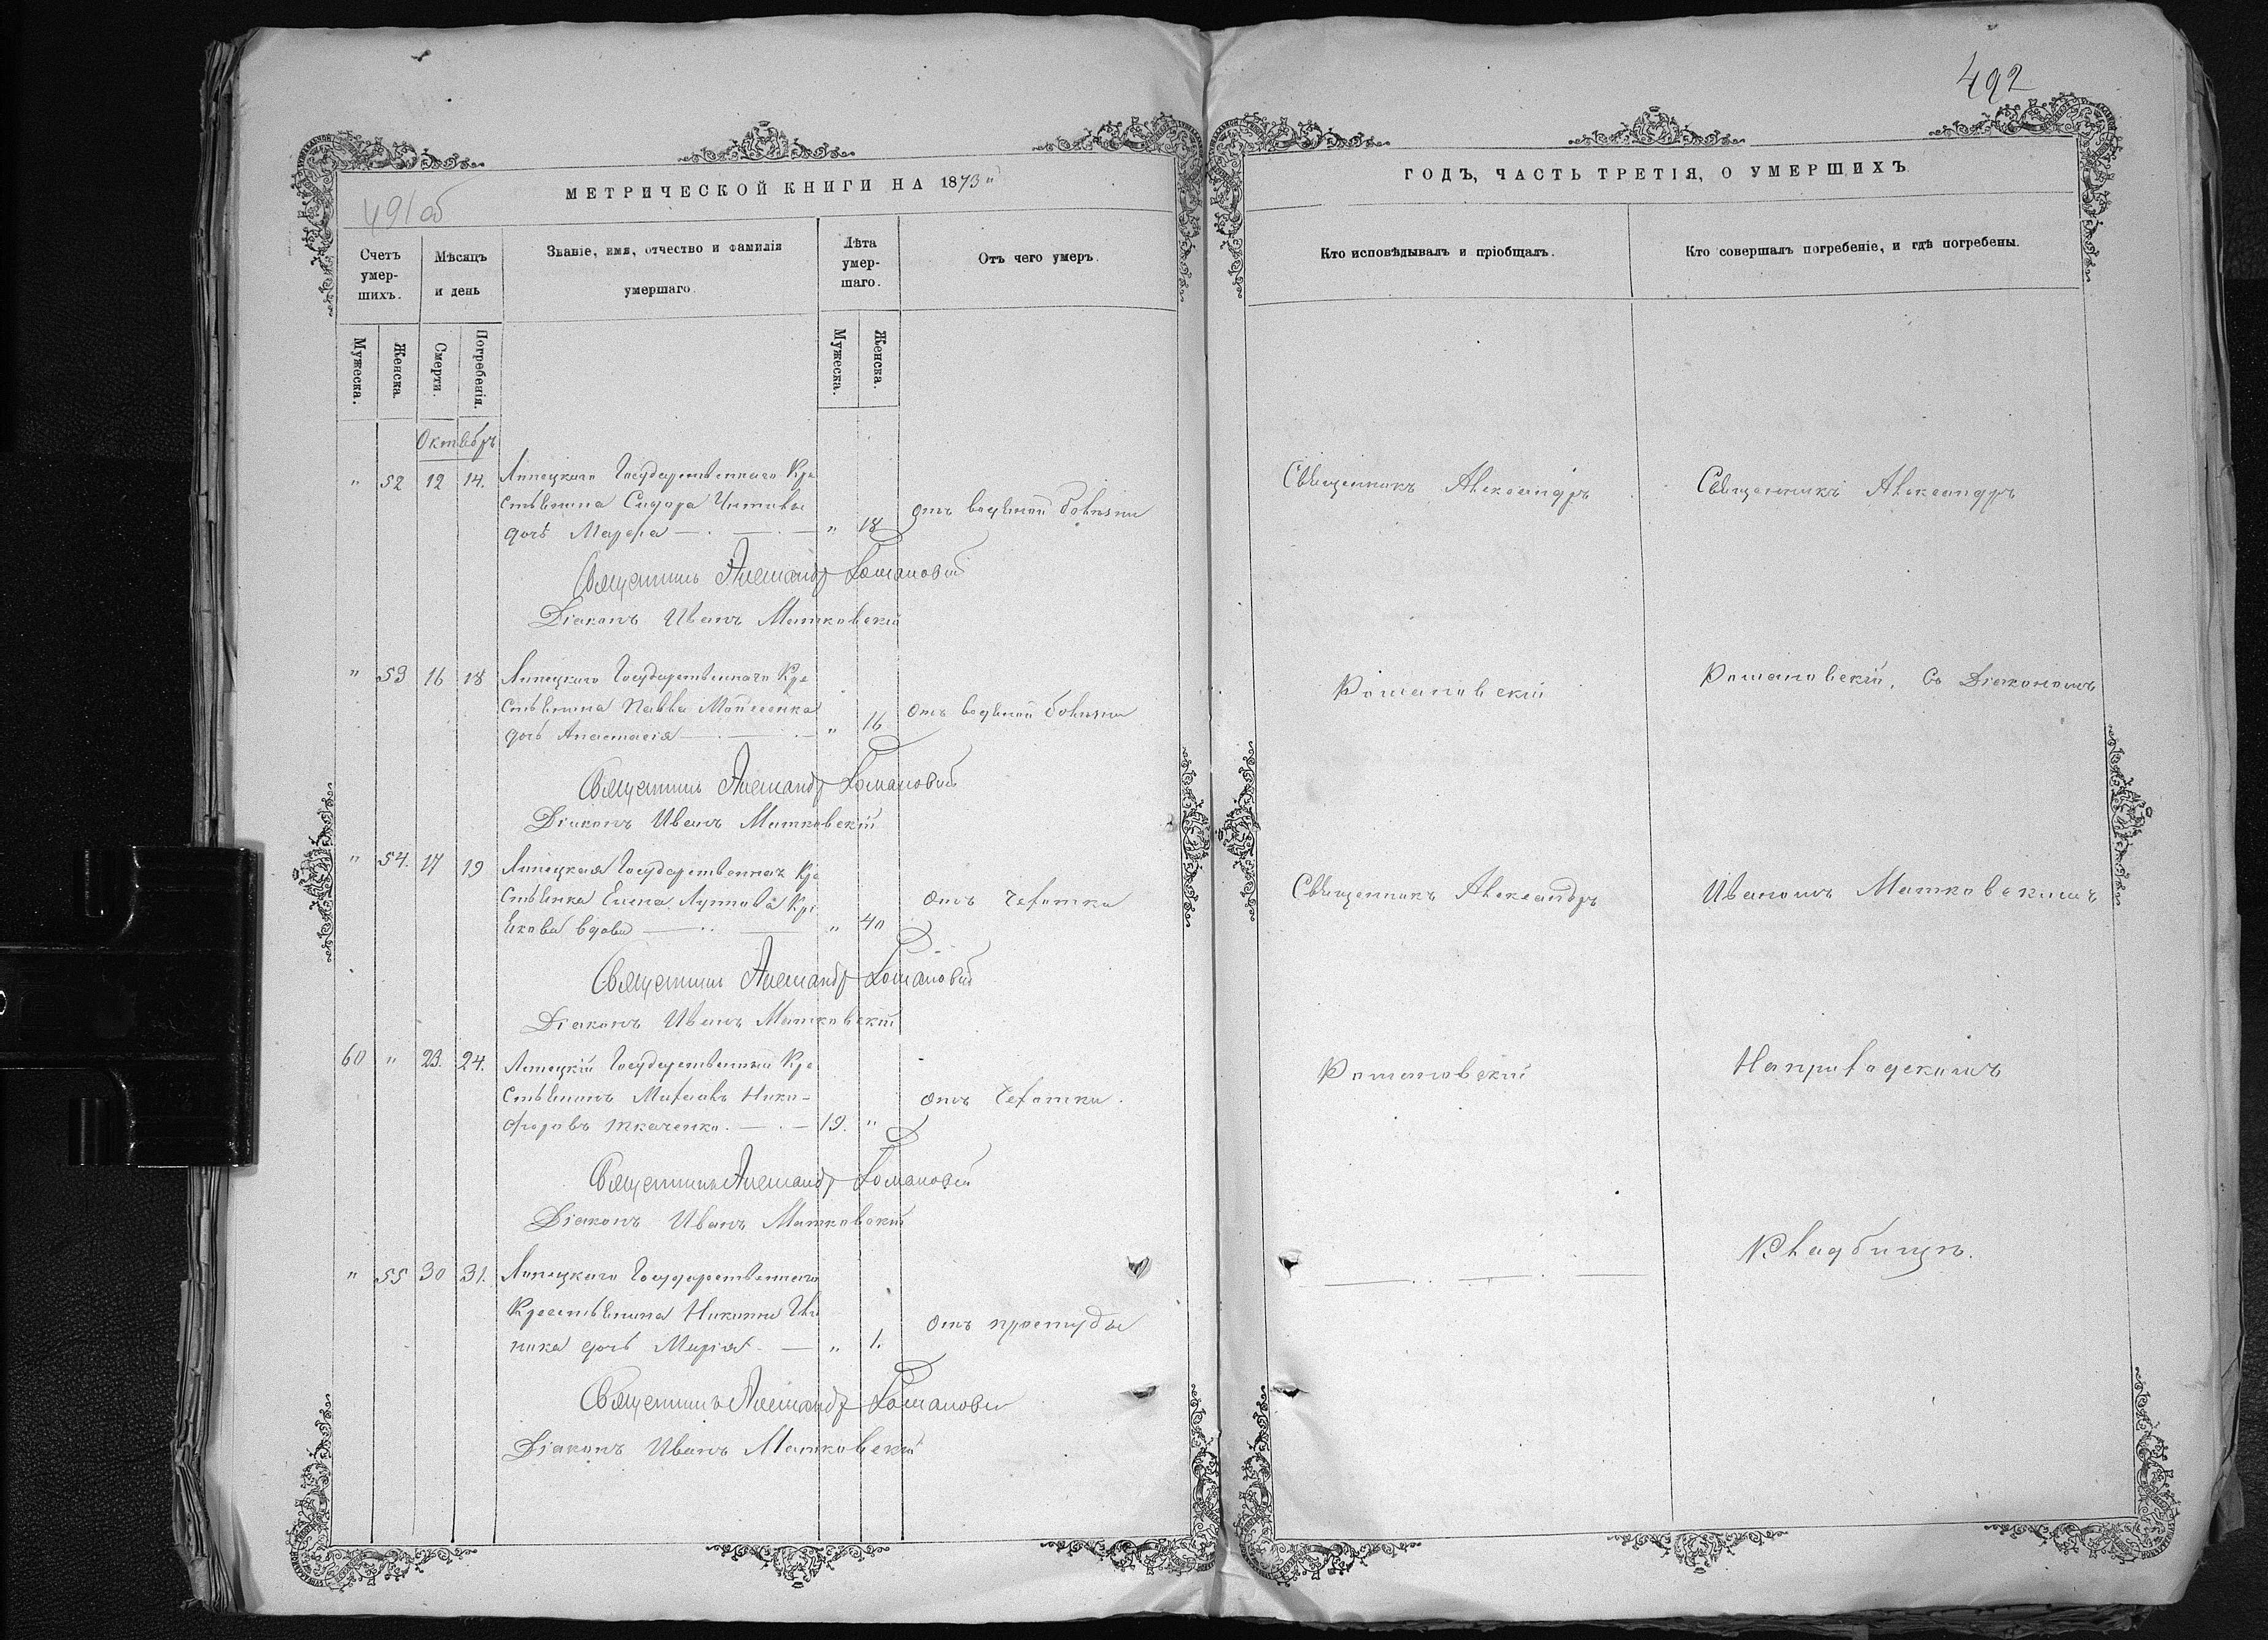 492
491 об
МЕТРИЧЕСКОЙ КНИГИ НА 1873
ГОДЪ, ЧАСТЬ ТРЕТІЯ, О УМЕРШИХЪ
Счетъ умер-шихъ.
Мѣсяцъ и день
Званіе, имя, отчество и фамилія
умершаго.
Лѣта умер-шаго.
Отъ чего умеръ.
Кто исповѣдывалъ и пріобщалъ.
Кто совершалъ погребеніе, и гдѣ погребены.
Мужеска.
Женска.
Смерти.
Погребенія.
Мужеска.
Женска.
Октябрь
" 52 12 14. Липецкаго Государственнаго Кре
стьянина Сидора
дочь Марфа " 18 отъ водяной болѣзни
Священникъ Александръ Романовскій
Діаконъ Иванъ Матковскій
" 53 16 18 Липецкаго Государственнаго Кре
стьянина Павла Мойсеенка
дочь Анастасія " 16 отъ водяной болѣзни
Священникъ Александръ Романовскій
Діаконъ Иванъ Матковскій
" 54. 17 19 Липецкая Государственная Кре
стьянка Елена
вдова " 40 отъ чахотки
Священникъ Александръ Романовскій
Діаконъ Иванъ Матковскій
60 " 23. 24. Липецкій Государственный Кре
стьянинъ Михаилъ Ники-
форовъ Ткаченко. 19. " отъ чахотки.
Священникъ Александръ Романовскій
Діаконъ Иванъ Матковскій
" 55 30 31. Липецкаго Государственнаго
Крестьянина Никиты
дочь Марія " 1. отъ простуды
Священникъ Александръ Романовскій
Діаконъ Иванъ Матковскій
Священникъ Александръ
Романовскій
Священникъ Александръ
Романовскій
Священникъ Александръ
Романовскій, съ Діакономъ
Иваномъ Матковскимъ
На приходскомъ
Кладбищѣ.